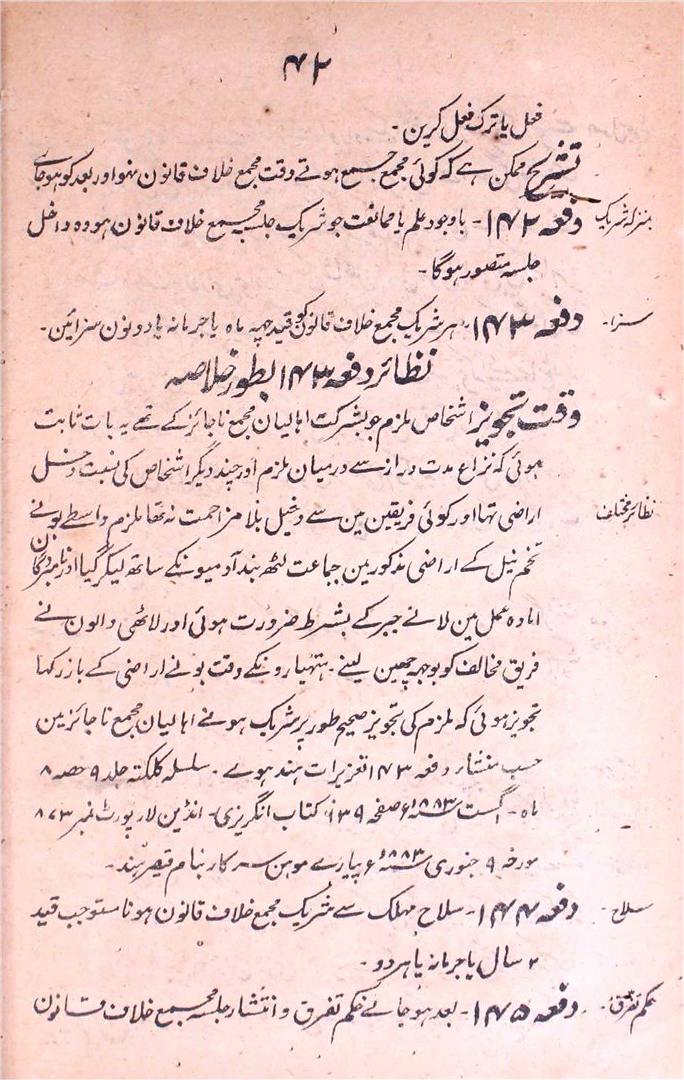 ۴۲
فعل یا ترک فعل کرین -
تشریح ممکن ہے کہ کوئی مجمع جمع ہوتے وقت مجمع خلاف قانون نہو اور بعد کو ہو جاے
بمنزلہ شریک دفعہ ۱۴۲ - باوجود علم یا ممانعت جو شریک جلسہ مجمع خلاف قانون ہو وہ داخل
جلسہ متصور ہوگا -
سزا - دفعہ ۱۴۳ - ہر شریک مجمع خلاف قانون کو قید چھہ ماہ یا جرمانہ یا دونون سزائین -
نظائر دفعہ ۱۴۳ بطور خلاصہ
وقت تجویز اشخاص ملزم جو بشرکت اہالیان مجمع ناجائز کے تھے یہ بات ثابت
ہوئی کہ نزاع مدت دراز سے درمیان ملزم اور چند دیگر اشخاص کی نسبت دخل
نظائر مختلف اراضی تھا اور کوئی فریقین مین سے دخیل بلا مزاحمت نہ تھا ملزم واسطے بونے
تخم نیل کے اراضی مذکور مین جماعت لٹھ بند آدمیونکے ساتھ لیکر گیا اور نامبردگان
امادہ عمل مین لانے جبر کے بشرط ضرورت ہوئی اور لاٹھی والون نے
فریق مخالف کو بوجہ چھین لینے ہتھیارونکے وقت بونے اراضی کے باز رکھا
تجویز ہوئی کہ ملزم کی تجویز صحیح طور پر شریک ہونے اہالیان مجمع ناجائز مین
حسب منشار دفعہ ۱۴۳ تعزیرات ہند ہوے - سلسلہ کلکتہ جلد ۹ حصہ ۸
ماہ - اگست ۱۸۸۳ء صفحہ ۱۳۹ کتاب انگریزی - انڈین لا رپورٹ نمبر ۸۷۳
مورخہ ۹ جنوری ۱۸۸۳ء پیارے موہن سرکار بنام قیصر ہند -
سلاح - دفعہ ۱۴۴ - سلاح مہلک سے شریک مجمع خلاف قانون ہونا مستوجب قید
۲ سال یا جرمانہ یا ہر دو -
حکم تفرق - دفعہ ۱۴۵ - بعد ہو جانے حکم تفرق و انتشار جلسہ مجمع خلاف قانون